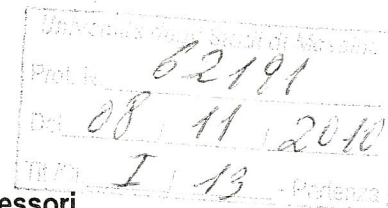 Università degli Studi di Messina
Prot. N. 62191
Del 08 / 11 / 2010
Tit./Cl. I / 13 - Partenza
essori